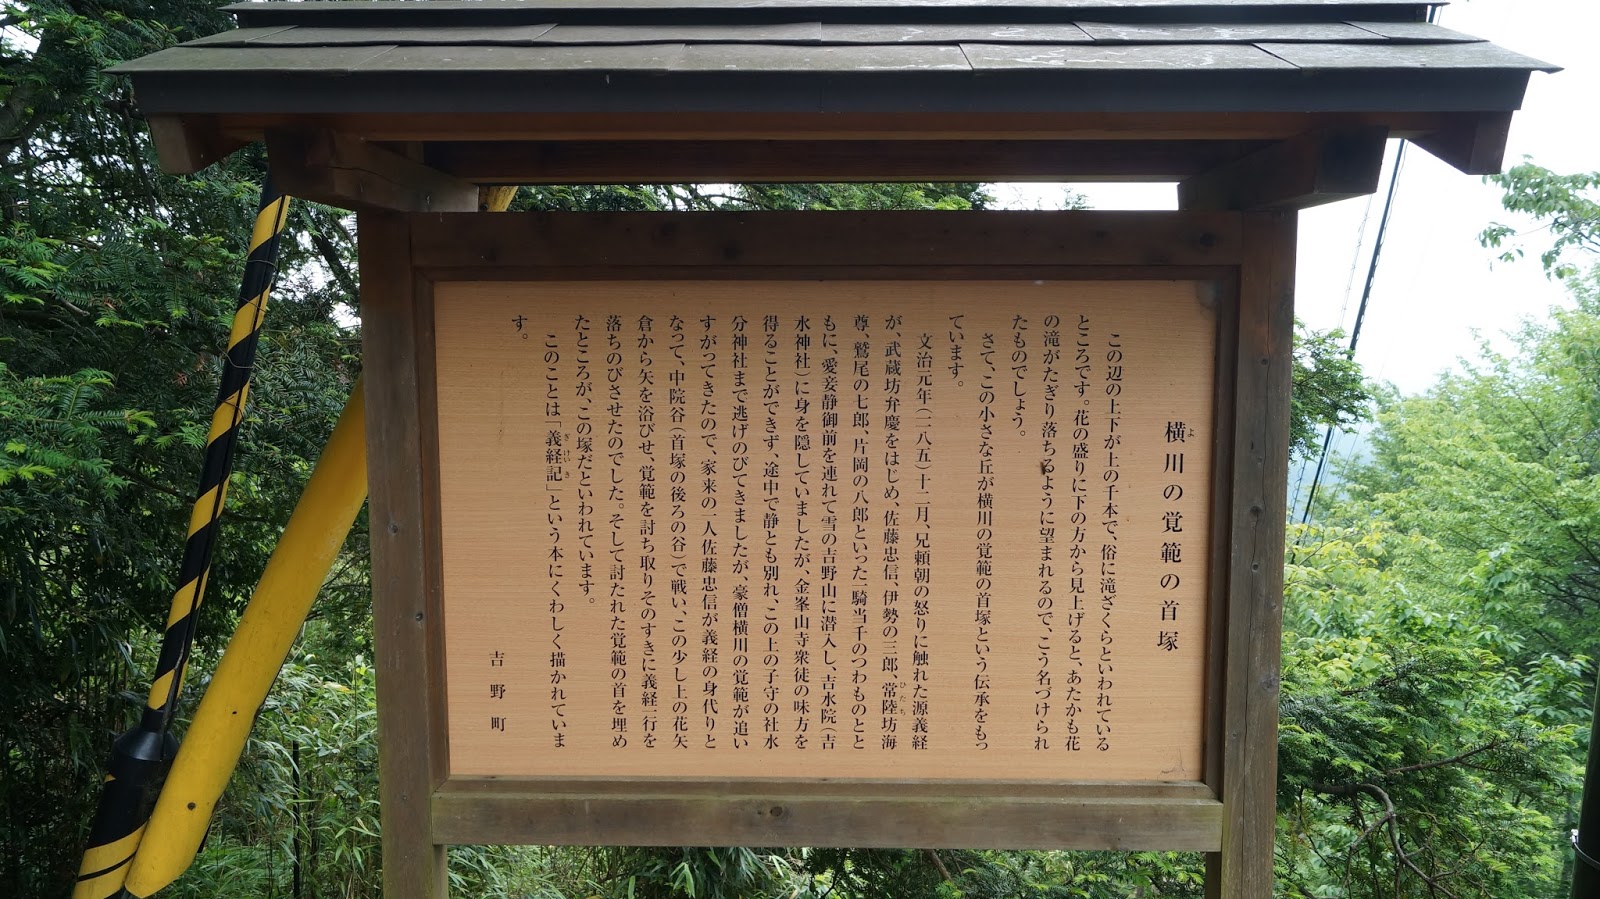 横川の覚範の首塚
よ
この辺の上下が上の千本で、俗に滝ざくらといわれている
ところです。花の盛りに下の方から見上げると、あたかも花
の滝がたぎり落ちるように望まれるので、こう名づけられ
たものでしょう。
さて、この小さな丘が横川の覚範の首塚という伝承をもっ
ています。
文治元年(一一八五)十二月、兄頼朝の怒りに触れた源義経
が、武蔵坊弁慶をはじめ、佐藤忠信、伊勢の三郎、常陸坊海
ひたち
尊、鷲尾の七郎、片岡の八郎といった一騎当千のつわものとと
もに、愛妾静御前を連れて雪の吉野山に潜入し、吉水院(吉
水神社)に身を隠していましたが、金峯山寺衆徒の味方を
得ることができず、途中で静とも別れ、この上の子守の社水
分神社まで逃げのびてきましたが、豪僧横川の覚範が追い
すがってきたので、家来の一人佐藤忠信が義経の身代りと
なって、中院谷(首塚の後ろの谷)で戦い、この少し上の花矢
倉から矢を浴びせ、覚範を討ち取りそのすきに義経一行を
落ちのびさせたのでした。そして討たれた覚範の首を埋め
たところが、この塚だといわれています。
このことは「義経記」という本にくわしく描かれていま
ぎけいき
す。
吉野町